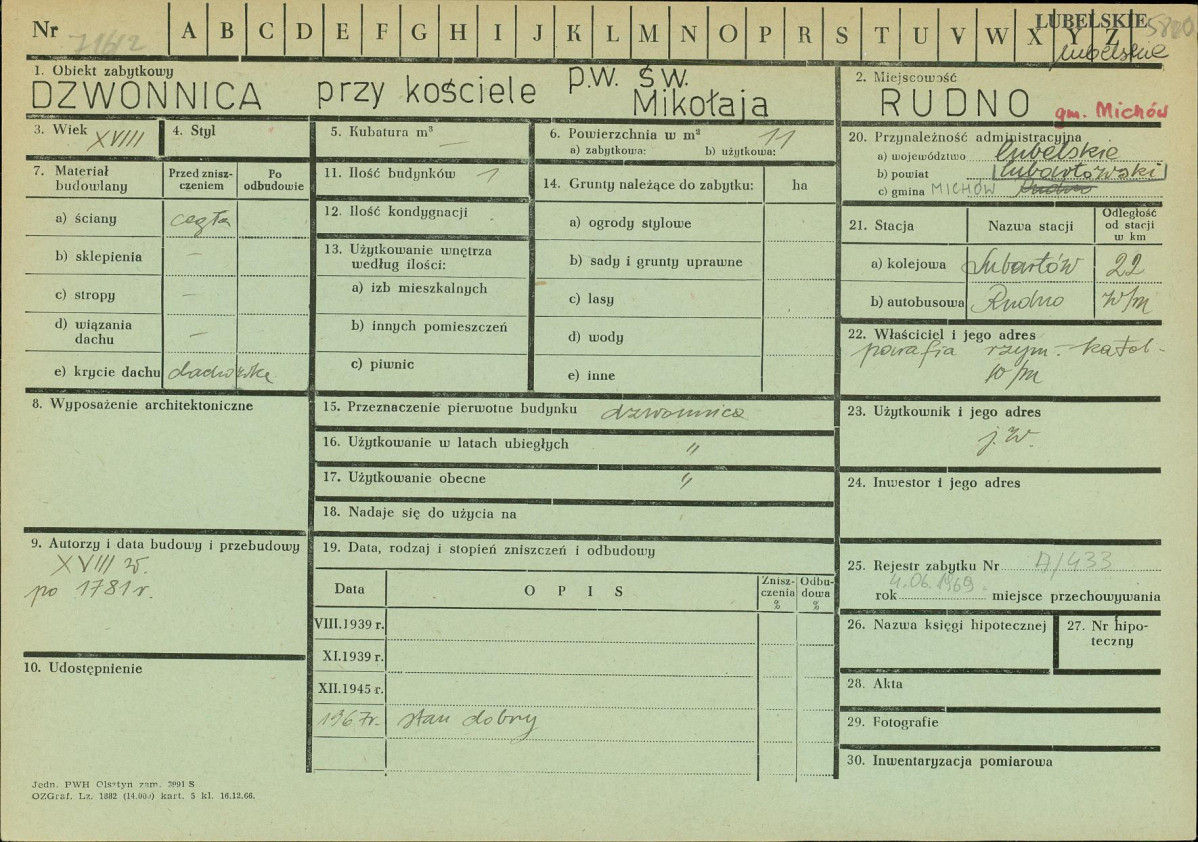 Nr 71612 A B C D E F G H I J K L M N O P R S T U V W X Y Z LUBELSKIE
lubelskie
1. Obiekt zabytkowy
DZWONNICA przy kościele p.w. św. Mikołaja
2. Miejscowość
RUDNO gm. Michów
3. Wiek XVIII
4. Styl
5. Kubatura m³ —
6. Powierzchnia w m² 11
a) zabytkowa: b) użytkowa:
7. Materiał budowlany
Przed zniszczeniem
Po odbudowie
a) ściany cegła
b) sklepienia —
c) stropy —
d) wiązania dachu —
e) krycie dachu dachówka
8. Wyposażenie architektoniczne
9. Autorzy i data budowy i przebudowy
XVIII w.
po 1781 r.
10. Udostępnienie
11. Ilość budynków 1
12. Ilość kondygnacji
13. Użytkowanie wnętrza
według ilości:
a) izb mieszkalnych
b) innych pomieszczeń
c) piwnic
14. Grunty należące do zabytku: ha
a) ogrody stylowe
b) sady i grunty uprawne
c) lasy
d) wody
e) inne
15. Przeznaczenie pierwotne budynku dzwonnica
16. Użytkowanie w latach ubiegłych "
17. Użytkowanie obecne "
18. Nadaje się do użycia na
19. Data, rodzaj i stopień zniszczeń i odbudowy
Data
O P I S
Zniszczenia %
Odbudowa %
VIII.1939 r.
XI.1939 r.
XII.1945 r.
1967r. stan dobry
20. Przynależność administracyjna
a) województwo lubelskie
b) powiat lubartowski
c) gmina MICHÓW Rudno
21. Stacja
Nazwa stacji
Odległość od stacji w km
a) kolejowa Lubartów 22
b) autobusowa Rudno w/m
22. Właściciel i jego adres
parafia rzym.-katol-
w/m
23. Użytkownik i jego adres
j.w.
24. Inwestor i jego adres
25. Rejestr zabytku Nr A/433
rok 4.06.1969. miejsce przechowywania
26. Nazwa księgi hipotecznej
27. Nr hipoteczny
28. Akta
29. Fotografie
30. Inwentaryzacja pomiarowa
Jedn. PWH Olsztyn zam. 2991 S
OZGraf. Lz. 1882 (14.000) kart. 5 kl. 16.12.66.